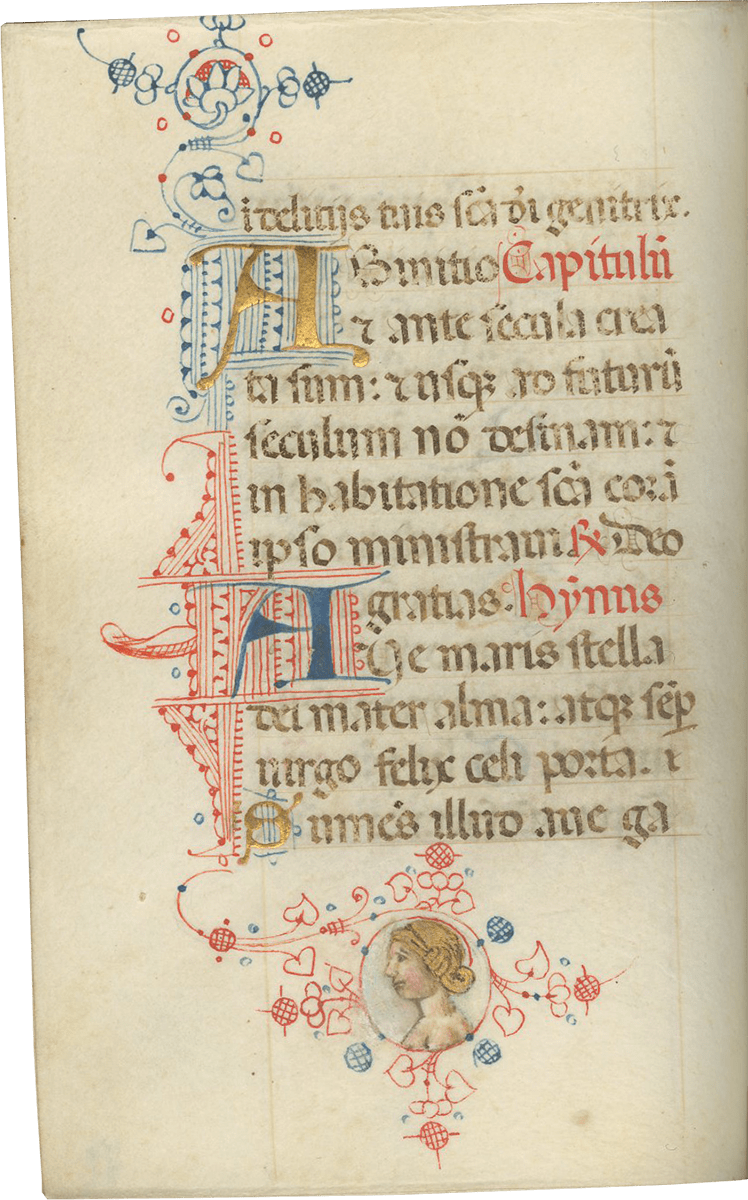 i deliciis tuis scā dī genitrix.
AB initio Capitulū
⁊ ante secula crea
ta sum: ⁊ usqꝫ ad futurū
seculum nō desinam: ⁊
in habitatione scā corā
ipso ministraui ℟ Deo
gratias. hȳnus
AUe maris stella
dei mater alma: atqꝫ sēꝑ
uirgo felix celi porta. i
Sumēs illud aue ga